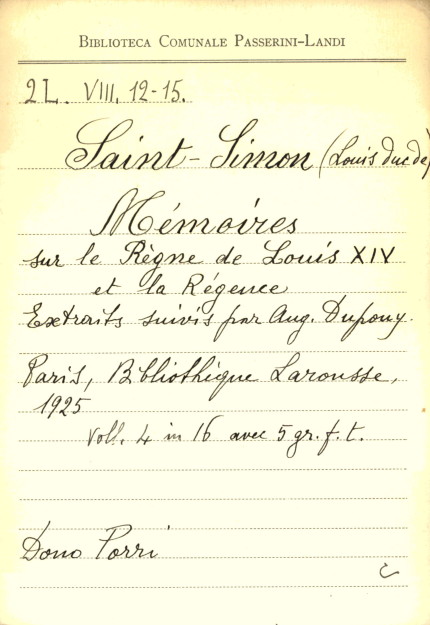 BIBLIOTECA COMUNALE PASSERINI-LANDI
2L. VIII. 12-15.
Saint-Simon (Louis duc de)
Mémoires
sur le Règne de Louis XIV
et la Régence
Extraits suivis par Aug. Dupouy.
Paris, Bibliothèque Larousse,
1925
voll. 4 in 16 avec 5 gr. f. t.
Dono Porri